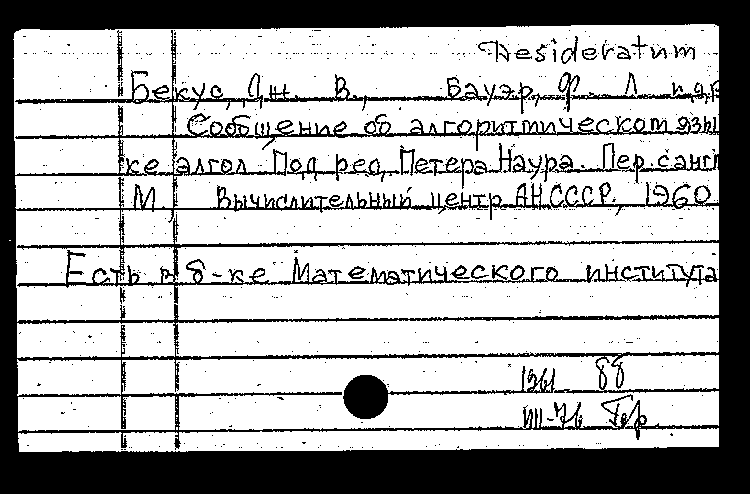 Desideratum
Бекус, Дж. В., Бауэр, Ф. Л и др
Сообщение об алгоритмическом язы
ке алгол. Под ред. Петера Наура. Пер. с англ
М., Вычислительный центр АН СССР, 1960
Есть в б-ке Математического института
1361 88